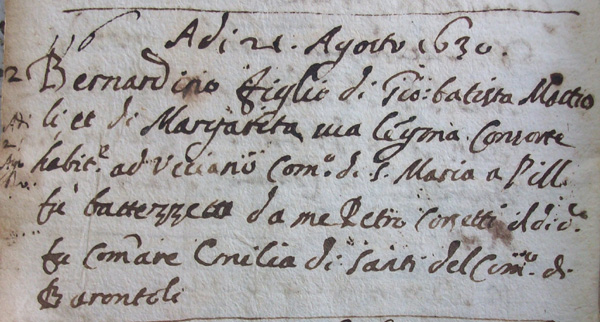 116 Adi 21. Agosto 1630.
Bernardino figlio di Gio: batista Mattio
li, et di Margarita sua legma Consorte
habit.e ad Com.o di S. Maria a Pilli
fù battezzato da me Pietro
fu Comare Emilia di Santi del Com.o di
Barontoli